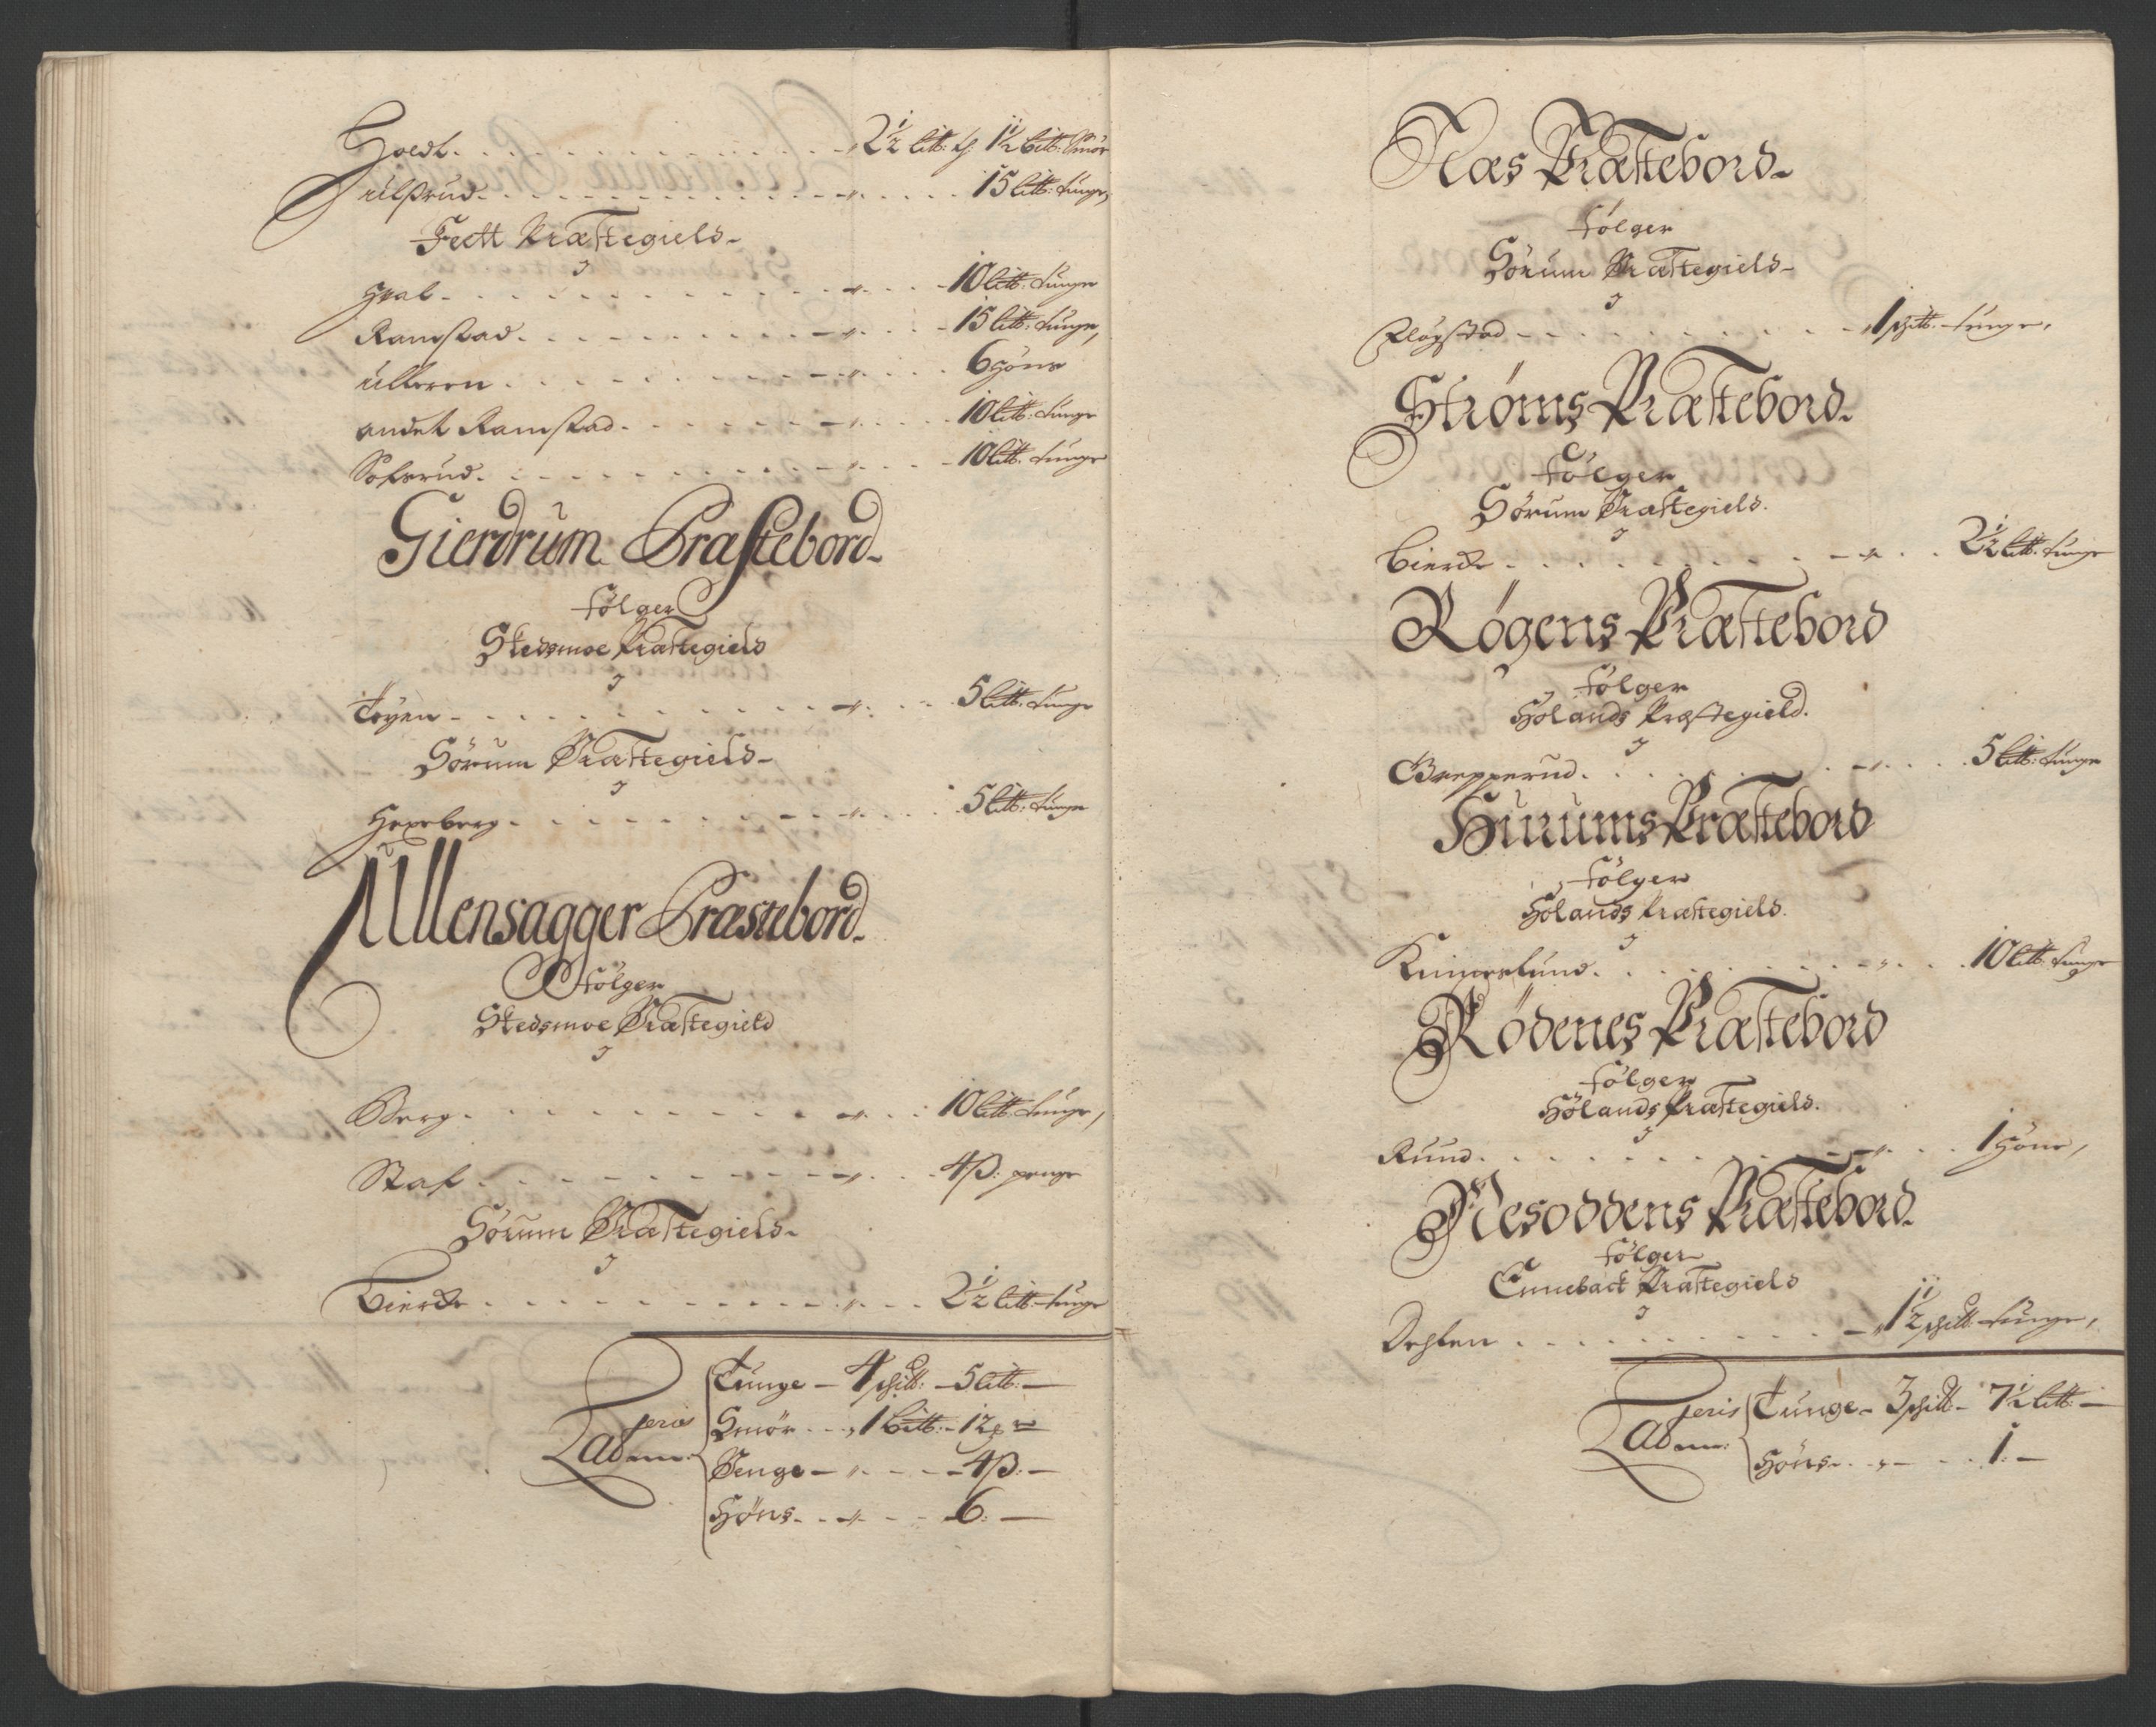 Holdt . . . 2½ litt: & 1½ bitt: Smör
Julsrud . . . 15 litt: tunge,
Fett Præstegield
J
Hval . . . 10 litt: tunge
Ramstad . . . 15 litt: tunge,
Ulleren . . . 6 Höns
andet Ramstad . . . 10 litt: tunge
Sotrud . . . 10 litt: tunge
Gierdrum Præstebord
følger
Skedsmoe Præstegield
J
Töyen . . . 5 litt: tunge
Sörum Præstegield
J
Hexeberg . . . 5 litt: tunge
Ullensagger Præstebord
følger
Skedsmoe Præstegield
J
Berg . . . 10 litt: tunge,
Staf . . . 4 ß: penge
Sörum Præstegield
J
Bierche . . . 2½ litt: tunge
Lateris
Tunge – 4 schitt: – 5 litt: –
Smör . . 1 bitt: – 12
Penge – 4 ß: –
Höns . . 6: –
Næs Præstebord
følger
Sörum Præstegield
J
Fløgstad . . . 1 schitt: tunge,
Strøms Præstebord
følger
Sörum Præstegield.
J
Bierche . . . 2½ litt: tunge
Røgens Præstebord
følger
Hölands Præstegield.
J
Brepperud . . . 5 litt: tunge
Hurums Præstebord
følger
Hölands Præstegield.
J
Kinnestund . . . 10 litt: tunge
Rödenes Præstebord
følger
Hölands Præstegield.
J
Rund . . . 1 Höne,
Nesoddens Præstebord
følger
Ennebach Præstegield
J
. . . 1½ schitt: tunge,
Lateris
Tunge – 3 schitt – 7½ litt: –
Höns . . 1: –